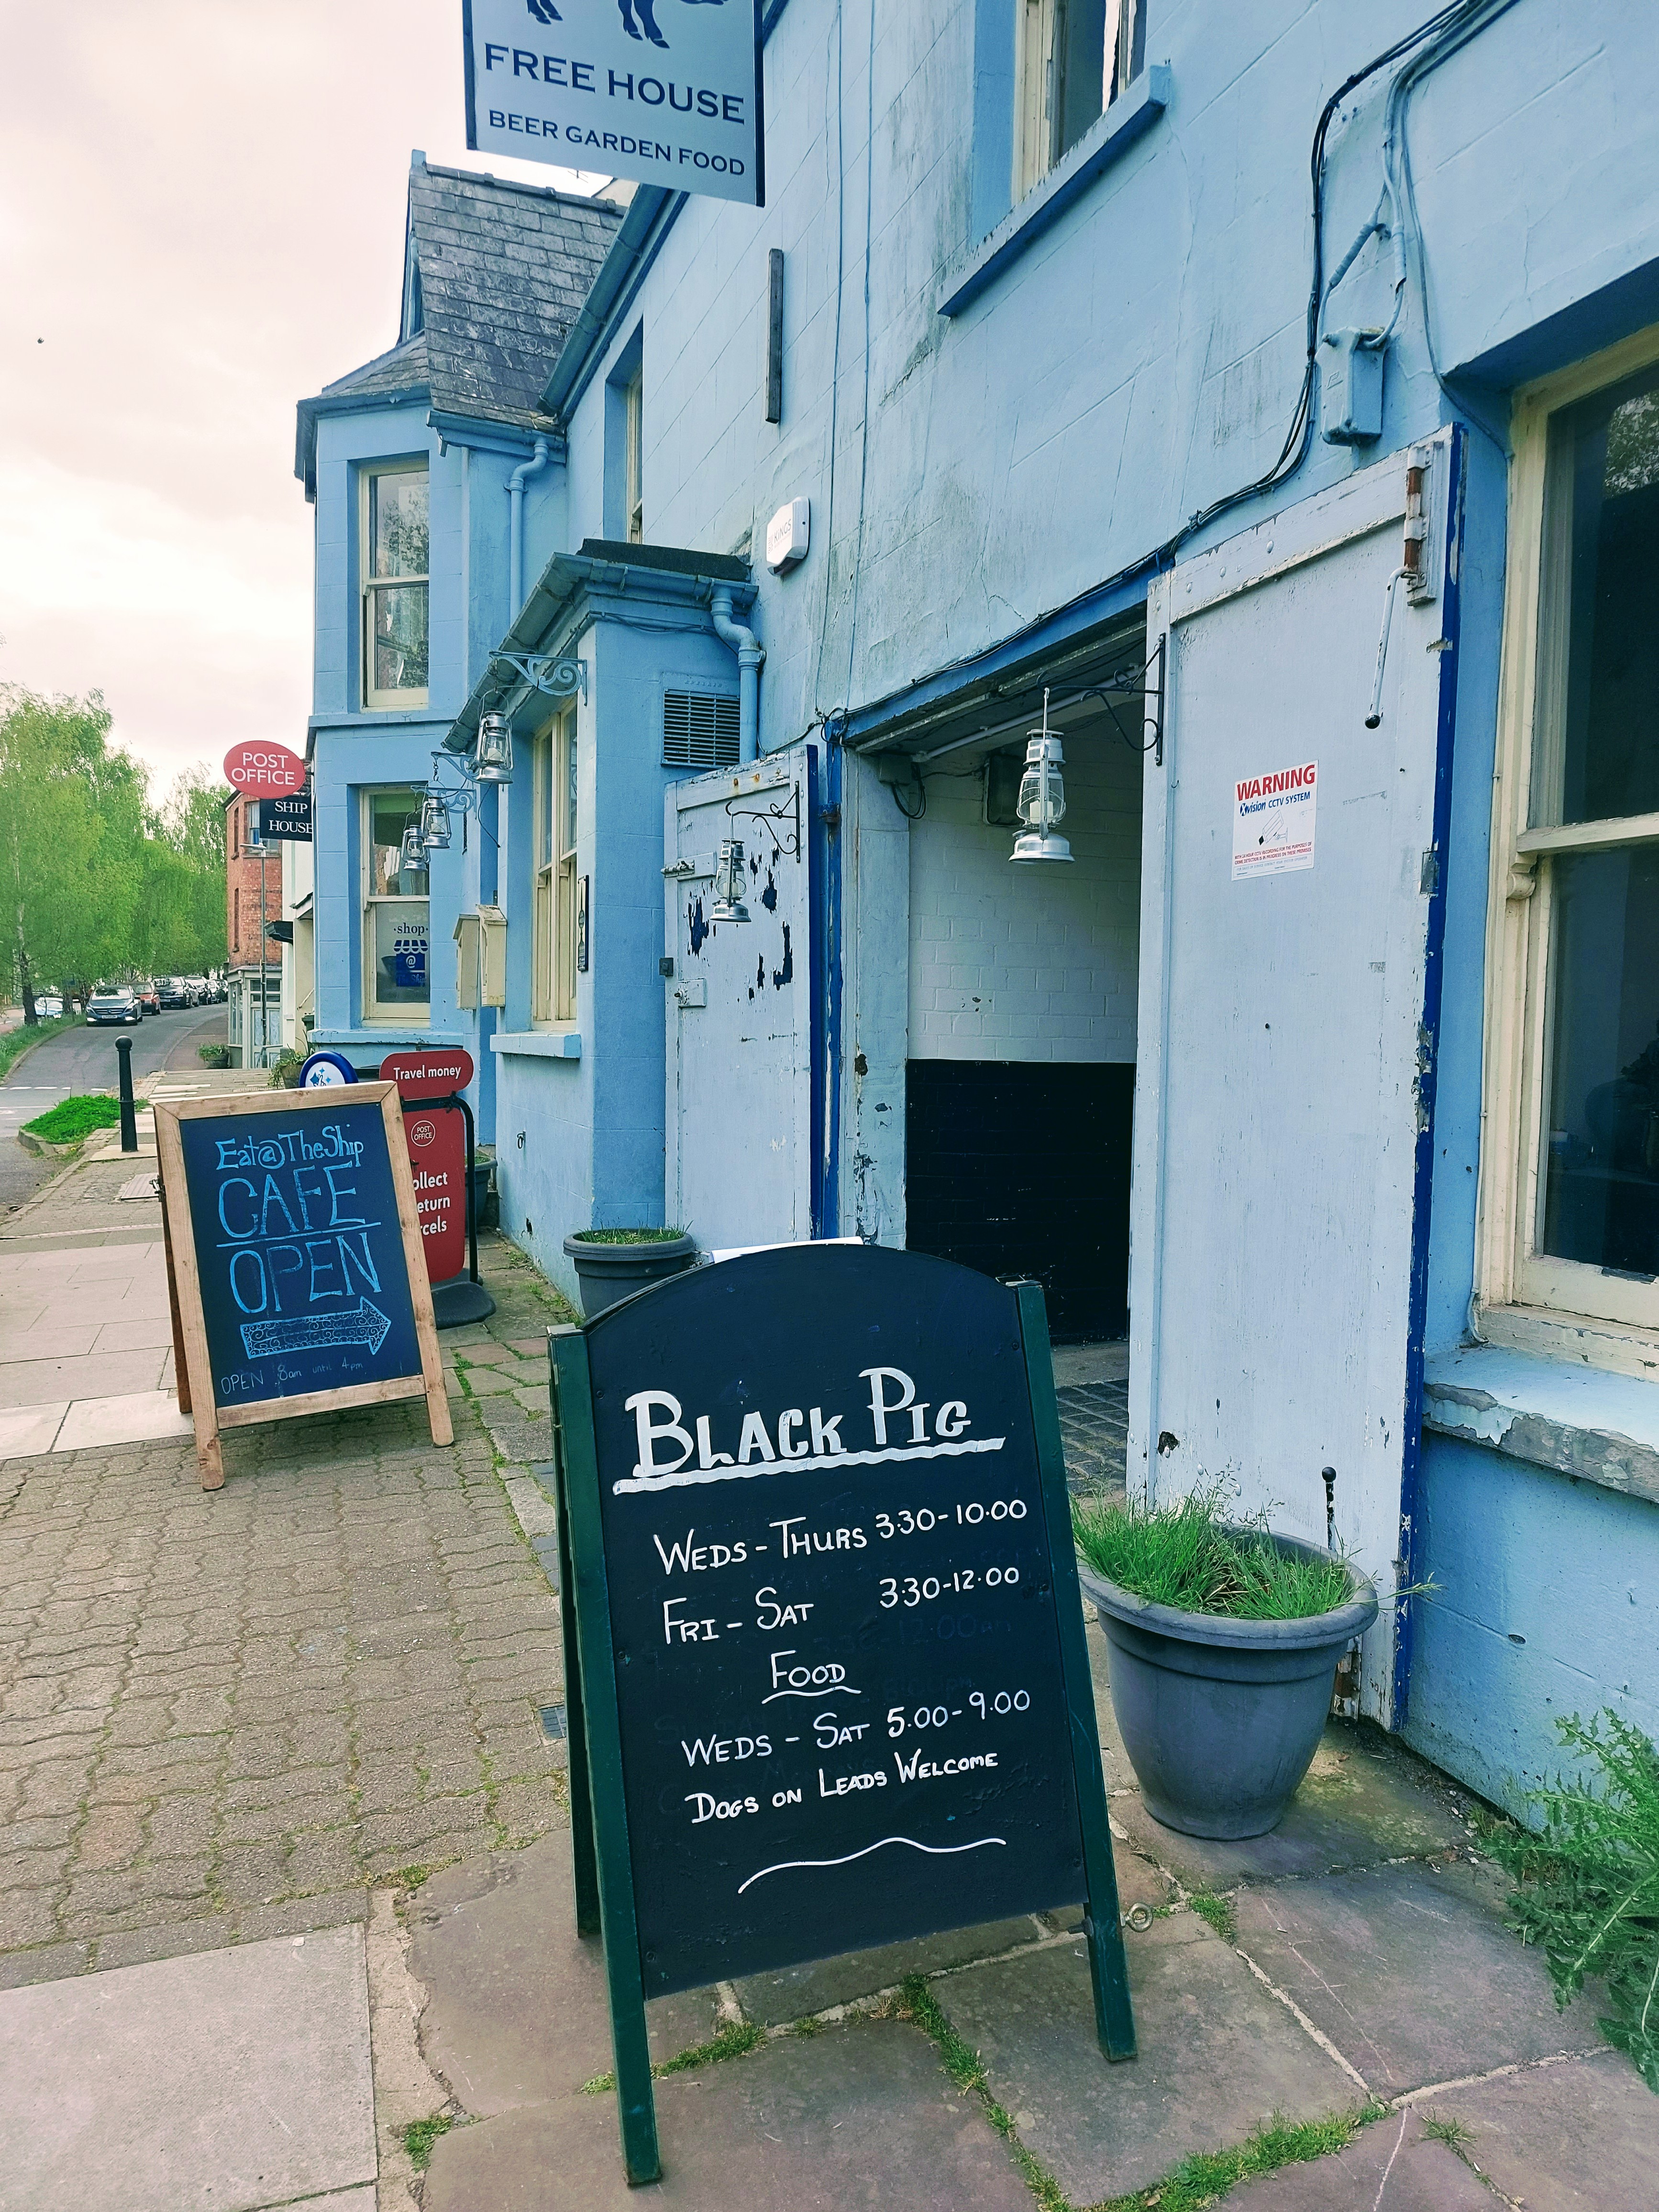 FREE HOUSE
BEER GARDEN FOOD
KINGS
POST
OFFICE
SHIP
HOUSE
WARNING
Xvision CCTV SYSTEM
·shop·
Travel money
POST
OFFICE
ollect
eturn
rcels
Eat@TheShip
CAFE
OPEN
OPEN 8am until 4pm
BLACK PIG
WEDS - THURS 3·30 - 10·00
FRI - SAT 3·30 - 12·00
FOOD
WEDS - SAT 5·00 - 9·00
DOGS ON LEADS WELCOME